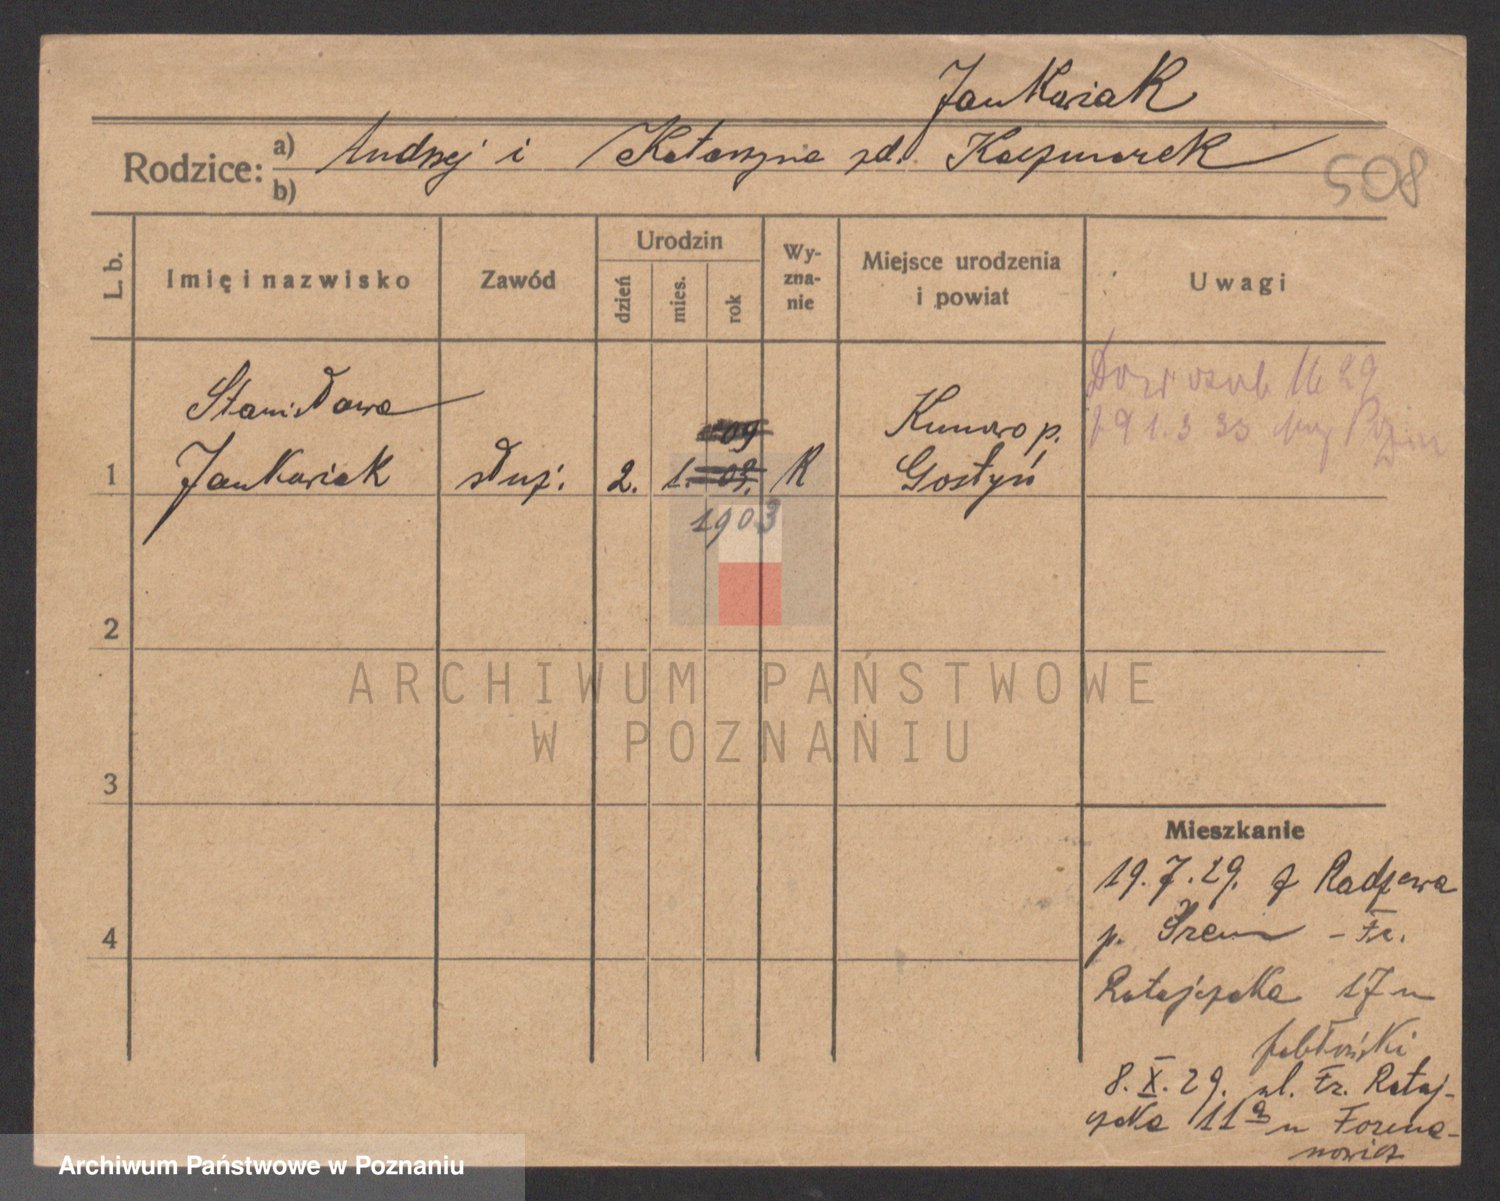 Jankowiak
Rodzice: a) Andrzej i Katarzyna zd. Kaczmarek
b)
508
L. b.
Imię i nazwisko
Zawód
Urodzin
dzień
mies.
rok
Wy-
zna-
nie
Miejsce urodzenia
i powiat
Uwagi
Stanisława
Jankowiak
1
służ.
2.
1.
09
03.
1903
R
Kunowo p.
Gostyń
Dow osob 16 29
1.3 33
2
ARCHIWUM PAŃSTWOWE
W POZNANIU
3
4
Mieszkanie
19.7.29. z Radzewa
p. Śrem – Fr.
Ratajczaka 17 u
Jabłoński
8.X.29. ul. Fr. Rataj-
czaka 11a u
Archiwum Państwowe w Poznaniu